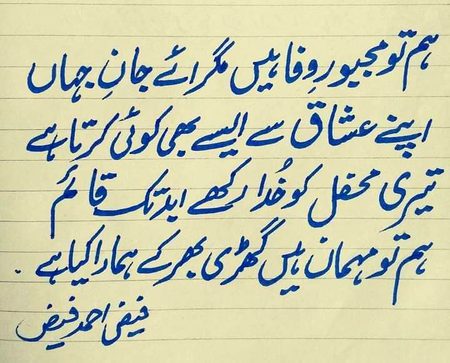 ہم تو مجبورِ وفا ہیں مگر اے جانِ جہاں
اپنے عشاق سے ایسے بھی کوئی کرتا ہے
تیری محفل کو خُدا رکھے ابد تک قائم
ہم تو مہماں ہیں گھڑی بھر کے ہمارا کیا ہے۔
فیض احمد فیض